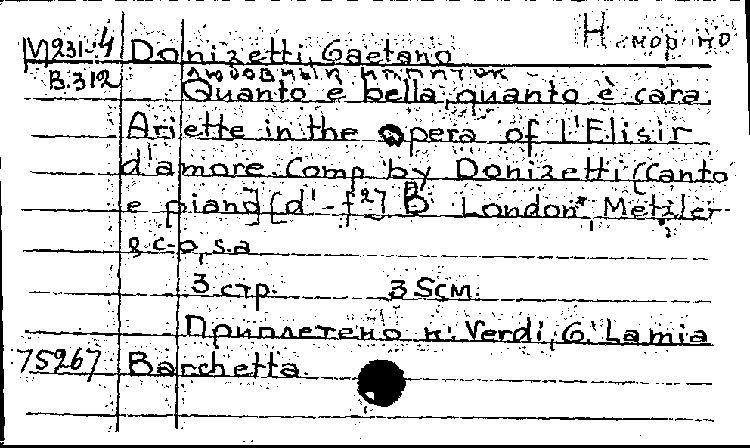 М231-4 Donizetti, Gaetano
В.312 Любовный напиток
Quanto e bella, quanto è cara.
Ariette in the opera of l'Elisir
d'amore. Comp. by Donizetti (Canto
e piano) [d'-f²] B London, Metzler
& c-o, s.a
3 стр. 35см.
Приплетено к: Verdi, G. La mia
75267 Barchetta.